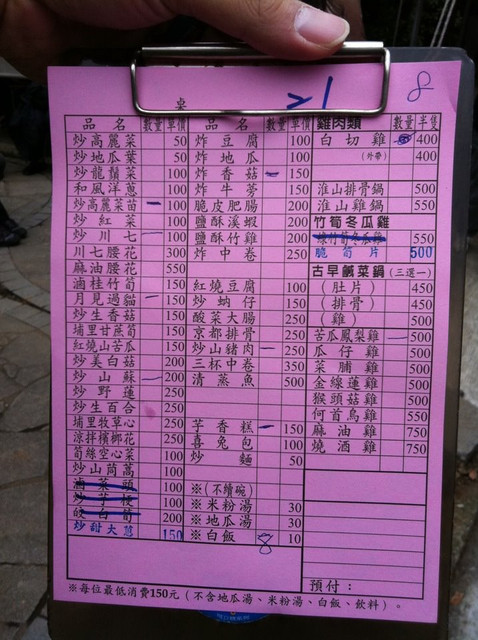 桌 21
8
品名 數量 單價
炒高麗菜 50
炒地瓜葉 50
炒龍鬚菜 100
和風洋蔥 100
炒高麗菜苗 100
炒紅菜 100
炒川七 100
川七腰花 300
麻油腰花 550
滷桂竹筍 100
月見過貓 150
炒生香菇 150
埔里甘蔗筍 150
紅燒山苦瓜 150
炒美白菇 200
炒山蘇 200
炒野蓮 250
炒生百合 250
埔里牧草心 250
涼拌檳榔花 250
筍絲空心菜 100
炒山茼蒿 100
滷菜頭 100
炒芋梗 100
皎白筍 200
炒甜大蔥 150
品名 數量 單價
炸豆腐 100
炸地瓜 100
炸香菇 150
炸牛蒡 150
脆皮肥腸 200
鹽酥溪蝦 200
鹽酥竹雞 200
炸中卷 300
紅燒豆腐 100
炒蚋仔 150
酸菜大腸 250
京都排骨 250
炒山豬肉 250
三杯中卷 350
清蒸魚 500
芋香糕 150
喜兔包 100
炒麵 50
※(不續碗)
※米粉湯 30
※地瓜湯 30
※白飯 10
雞肉類 數量 半隻
白切雞 400
(外帶) 400
淮山排骨鍋 500
淮山雞鍋 550
竹筍冬瓜雞
綠竹筍冬瓜雞 550
脆筍片 500
古早鹹菜鍋(三選一)
(肚片) 450
(排骨) 450
(雞) 500
苦瓜鳳梨雞 500
瓜仔雞 500
菜脯雞 500
金線蓮雞 500
猴頭菇雞 500
何首烏雞 550
麻油雞 750
燒酒雞 750
預付：
※每位最低消費150元(不含地瓜湯、米粉湯、白飯、飲料)。